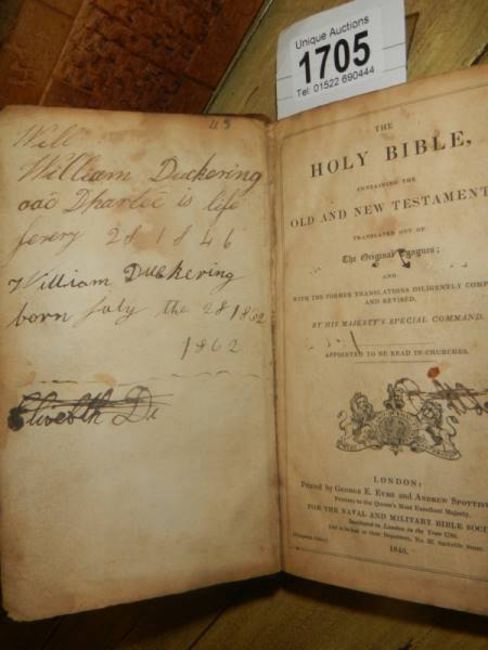 Unique Auctions
1705
Tel: 01522 690444
Will
William Duckering
is life
28 1846
William Duckering
born July the 28 1862
1862
THE
HOLY BIBLE,
CONTAINING THE
OLD AND NEW TESTAMENT
TRANSLATED OUT OF
The Original Tongues;
AND
WITH THE FORMER TRANSLATIONS DILIGENTLY COMP
AND REVISED,
BY HIS MAJESTY'S SPECIAL COMMAND.
APPOINTED TO BE READ IN CHURCHES.
LONDON:
Printed by GEORGE E. EYRE and ANDREW SPOTTIS
Printers to the Queen's Most Excellent Majesty.
FOR THE NAVAL AND MILITARY BIBLE SOCI
Instituted in London in the Year 1780.
1846.